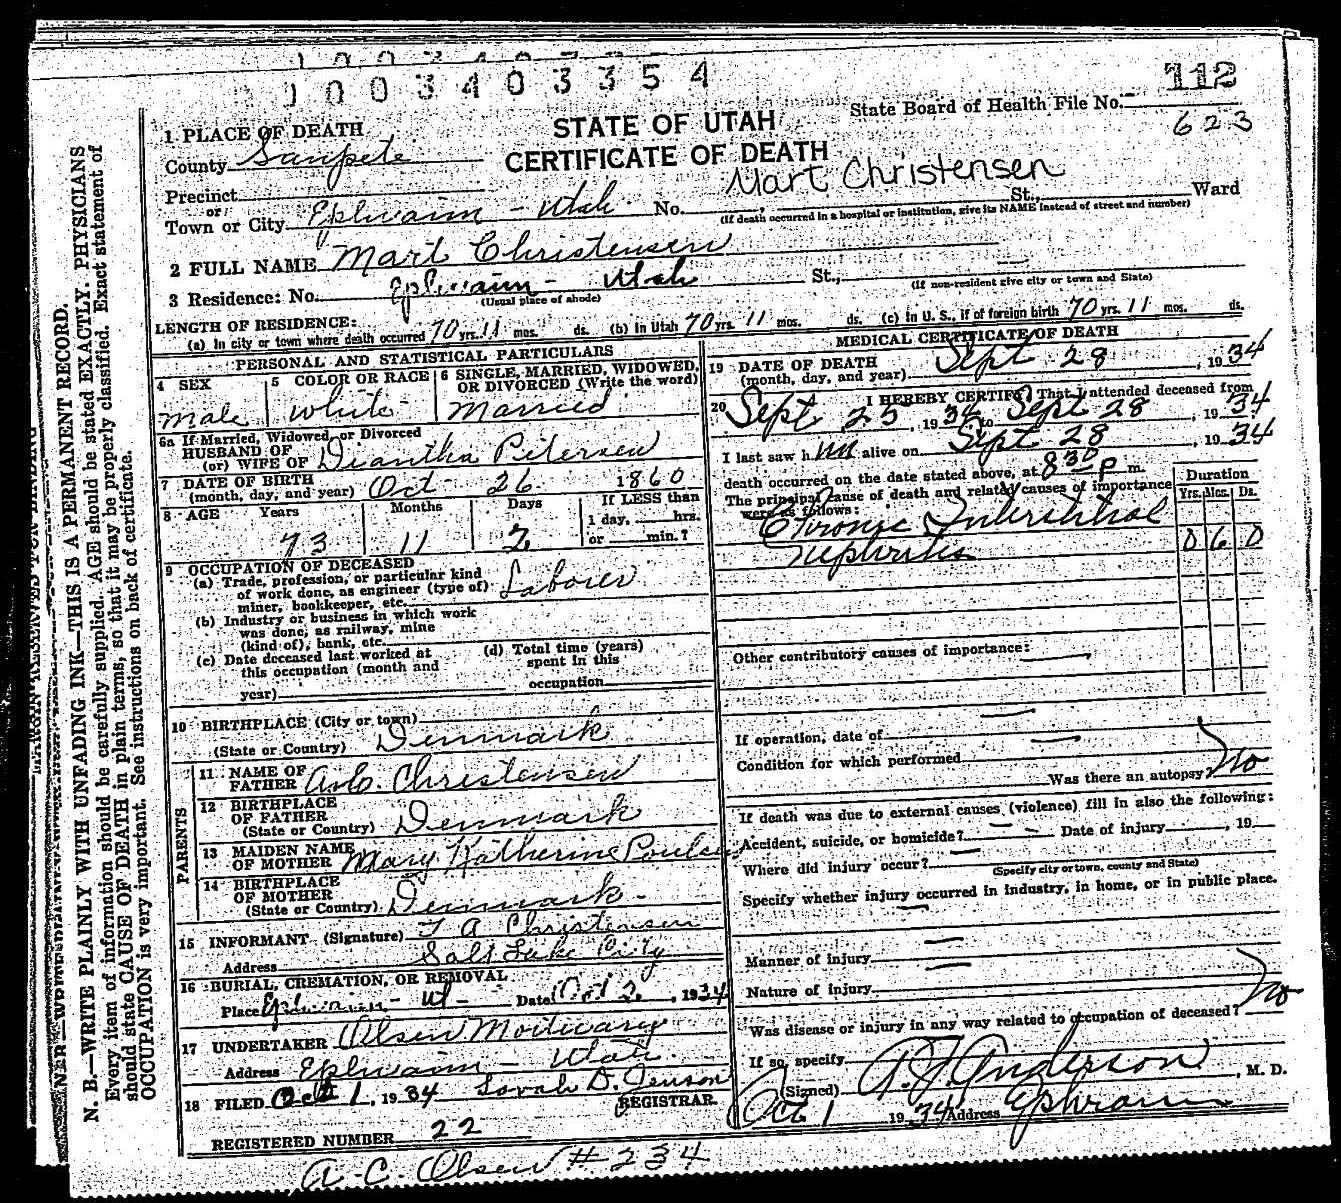 1003403354
112
State Board of Health File No.
623
1 PLACE OF DEATH
STATE OF UTAH
CERTIFICATE OF DEATH
County Sanpete
Mart Christensen
Precinct
or
St., Ward
Town or City Ephraim - Utah No.
(If death occurred in a hospital or institution, give its NAME instead of street and number)
2 FULL NAME Mart Christensen
3 Residence: No. Ephraim - Utah St.,
(Usual place of abode) (If non-resident give city or town and State)
LENGTH OF RESIDENCE:
(a) In city or town where death occurred 70 yrs. 11 mos. ds. (b) In Utah 70 yrs. 11 mos. ds. (c) In U. S., if of foreign birth 70 yrs. 11 mos. ds.
PERSONAL AND STATISTICAL PARTICULARS
4 SEX
male
5 COLOR OR RACE
white
6 SINGLE, MARRIED, WIDOWED, OR DIVORCED (Write the word)
Married
6a If Married, Widowed or Divorced
HUSBAND OF
(or) WIFE OF Diantha Petersen
7 DATE OF BIRTH
(month, day, and year) Oct 26 1860
8 AGE Years Months Days If LESS than
73 11 2 1 day, hrs.
or min.?
9 OCCUPATION OF DECEASED
(a) Trade, profession, or particular kind
of work done, as engineer (type of)
miner, bookkeeper, etc. Laborer
(b) Industry or business in which work
was done, as railway, mine
(kind of), bank, etc.
(c) Date deceased last worked at
this occupation (month and
year)
(d) Total time (years)
spent in this
occupation
10 BIRTHPLACE (City or town)
(State or Country) Denmark
PARENTS
11 NAME OF
FATHER Christensen
12 BIRTHPLACE
OF FATHER
(State or Country) Denmark
13 MAIDEN NAME
OF MOTHER Mary Katherine
14 BIRTHPLACE
OF MOTHER
(State or Country) Denmark
15 INFORMANT (Signature) A Christensen
Address Salt Lake City
16 BURIAL, CREMATION, OR REMOVAL
Place Ephraim - Ut - Date Oct 2, 1934
17 UNDERTAKER Olsen Mortuary
Address Ephraim - Utah
18 FILED Oct 1, 1934 Sarah D. Jenson
REGISTRAR
REGISTERED NUMBER 22
A. C. Olsen # 234
MEDICAL CERTIFICATE OF DEATH
19 DATE OF DEATH
(month, day, and year) Sept 28, 1934
20 I HEREBY CERTIFY That I attended deceased from
Sept 25, 1934 to Sept 28, 1934
I last saw him alive on Sept 28, 1934
death occurred on the date stated above, at 8 30 P m.
The principal cause of death and related causes of importance
were as follows:
Duration
Yrs. Mos. Ds.
Chronic Interstitial
nephritis 0 6 0
Other contributory causes of importance:
If operation, date of
Condition for which performed
Was there an autopsy? No
If death was due to external causes (violence) fill in also the following:
Accident, suicide, or homicide? Date of injury, 19
Where did injury occur?
(Specify city or town, county and State)
Specify whether injury occurred in industry, in home, or in public place.
Manner of injury
Nature of injury
Was disease or injury in any way related to occupation of deceased? No
If so, specify
(Signed) A. J. Anderson, M. D.
Oct 1 1934 Address Ephraim
N. B.—WRITE PLAINLY WITH UNFADING INK—THIS IS A PERMANENT RECORD.
Every item of information should be carefully supplied. AGE should be stated EXACTLY. PHYSICIANS
should state CAUSE OF DEATH in plain terms, so that it may be properly classified. Exact statement of
OCCUPATION is very important. See instructions on back of certificate.